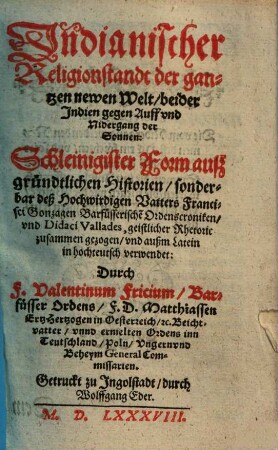 Indianischer
Religionstandt der gan-
tzen newen Welt/beider
Indien gegen Auff vnd
Nidergang der
Sonnen:
Schleinigister Form auß
gründtlichen Historien/sonder-
bar deß Hochwirdigen Vatters Franci-
sci Gonzagen Barfüsserische Ordenscroniken/
vnd Didaci Vallades, geistlicher Rhetoric
zusammen gezogen/vnd außm Latein
in hochteutsch verwendet:
Durch
F. Valentinum Fricium/Bar-
füsser Ordens/F. D. Matthiassen
Ertzhertzogen in Oesterreich/ꝛc. Beicht-
vatter/vnnd ermelten Ordens inn
Teutschland/Poln/Vngern vnd
Beheym General Com-
missarien.
Getruckt zu Ingolstadt/durch
Wolffgang Eder.
M. D. LXXXVIII.